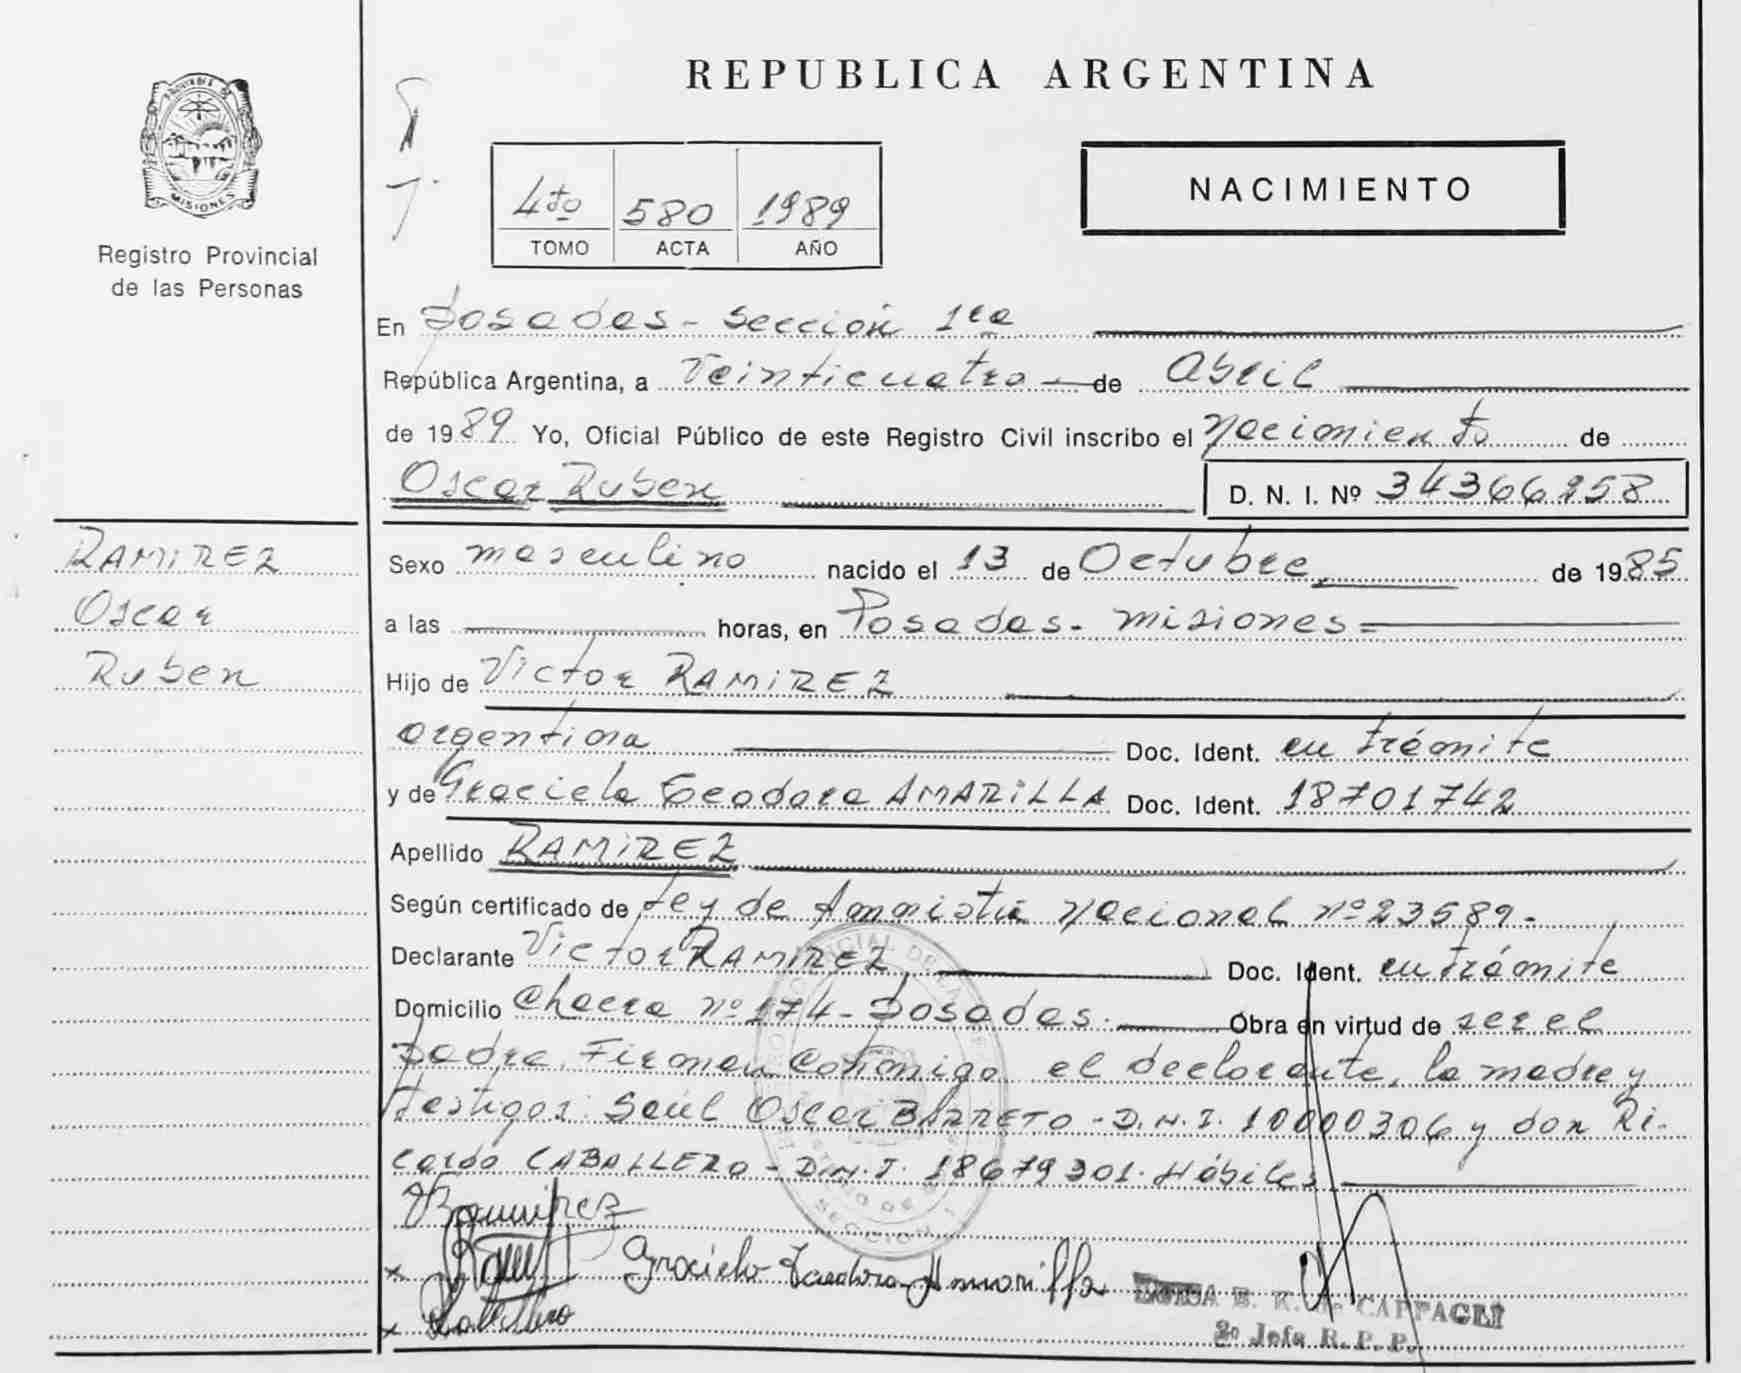 PROVINCIA DE
MISIONES
Registro Provincial
de las Personas
REPUBLICA ARGENTINA
4to 580 1989
TOMO ACTA AÑO
NACIMIENTO
En Posadas - Sección 1ra
República Argentina, a Veinticuatro de Abril
de 1989 Yo, Oficial Público de este Registro Civil inscribo el Nacimiento de
Oscar Ruben D. N. I. Nº 34366958
RAMIREZ
Oscar
Ruben
Sexo masculino nacido el 13 de Octubre de 1985
a las horas, en Posadas - Misiones =
Hijo de Victor RAMIREZ
argentina Doc. Ident. en trámite
y de Graciela Teodora AMARILLA Doc. Ident. 18701742
Apellido RAMIREZ
Según certificado de Ley de Amnistia Nacional nº 23589.
Declarante Victor RAMIREZ Doc. Ident. en trámite
Domicilio Chacra nº 174 - Posadas. Obra en virtud de ser el
padre. Firman conmigo el declarante, la madre y
testigos: Saúl Oscar BARRETO - D.N.I. 10000306 y don Ri-
cardo CABALLERO - D.N.I. 18679301. Hábiles
VRamirez
Graciela Teodora Amarilla
E. K. de
2º Jefa R. P. P.
SECCION 1